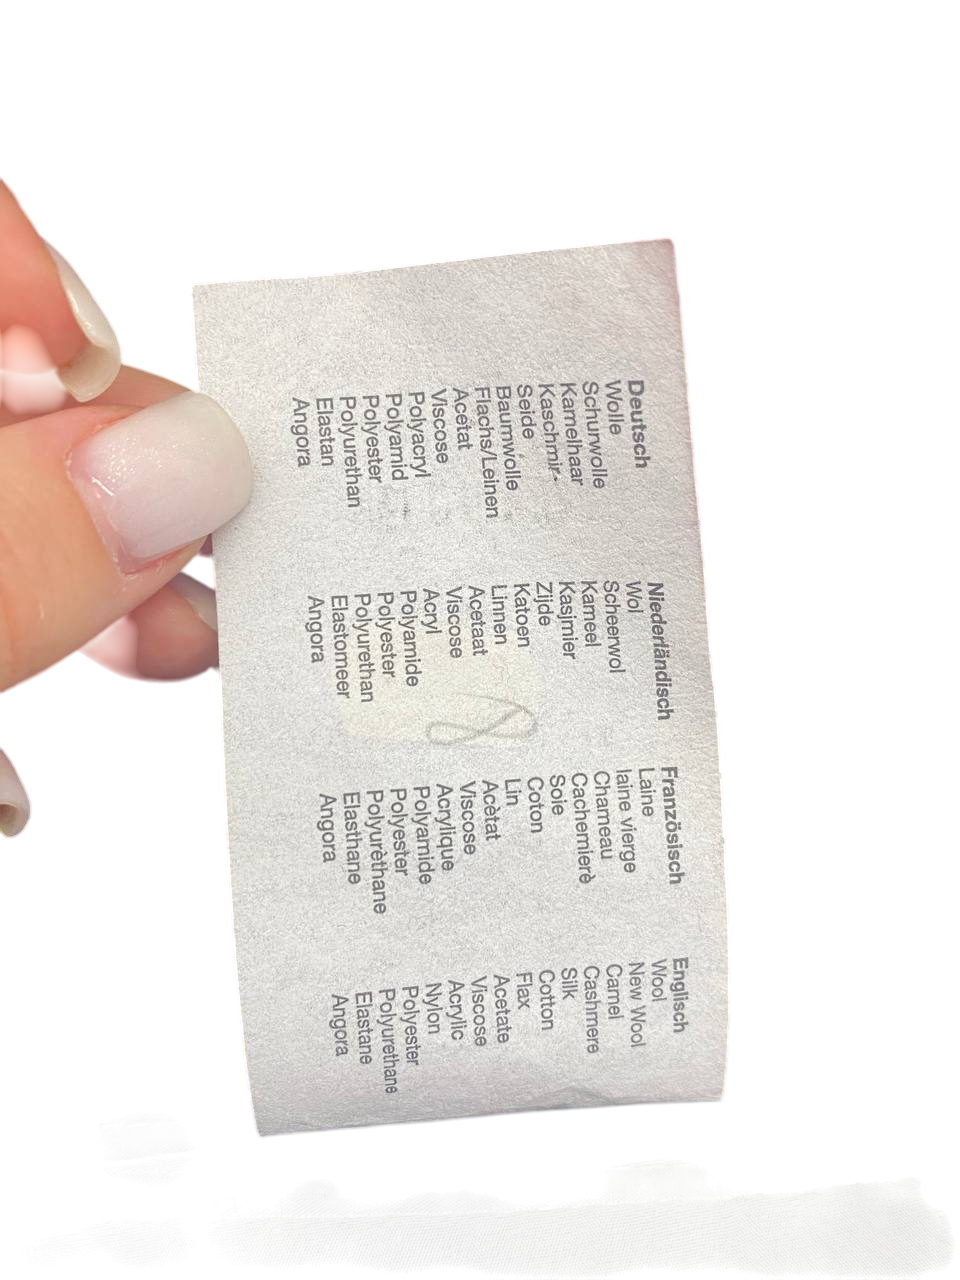 Deutsch Niederländisch Französisch Englisch
Wolle Wol Laine Wool
Schurwolle Scheerwol laine vierge New Wool
Kamelhaar Kameel Chameau Camel
Kaschmir- Kasjmier Cachemierè Cashmere
Seide Zijde Soie Silk
Baumwolle Katoen Coton Cotton
Flachs/Leinen Linnen Lin Flax
Acetat Acetaat Acètat Acetate
Viscose Viscose Viscose Viscose
Polyacryl Acryl Acrylique Acrylic
Polyamid Polyamide Polyamide Nylon
Polyester Polyester Polyester Polyester
Polyurethan Polyurethan Polyurèthane Polyurethane
Elastan Elastomeer Elasthane Elastane
Angora Angora Angora Angora